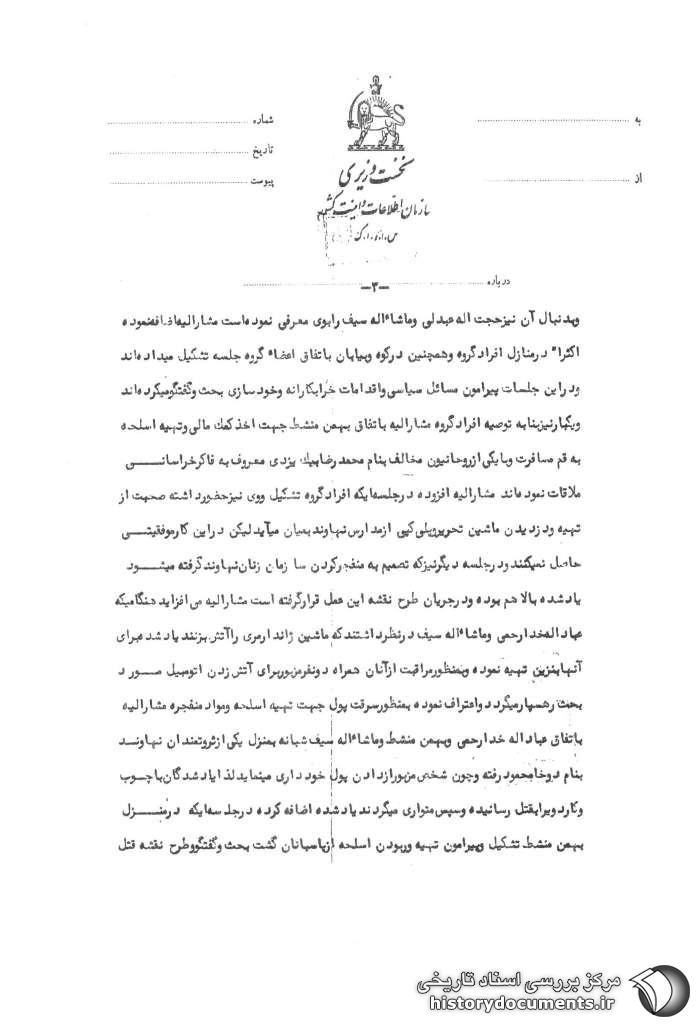 به
شماره
تاریخ
از
پیوست
نخست وزیری
سازمان اطلاعات و امنیت کشور
س.ا.و.ا.ک
درباره
-۳-
وبدنبال آن نیزحجت اله عبدلی وماشاءاله سیف رابوی معرفی نموده است مشارالیه اضافه نموده
اکثراً درمنازل افرادگروه وهمچنین درکوه وبیابان باتفاق اعضاء گروه جلسه تشکیل میداده اند
ودراین جلسات پیرامون مسائل سیاسی واقدامات خرابکارانه وخودسازی بحث وگفتگومیکرده اند
ویکبارنیزبنابه توصیه افرادگروه مشارالیه باتفاق بهمن منشط جهت اخذکمک مالی وتهیه اسلحه
به قم مسافرت وبایکی ازروحانیون مخالف بنام محمدرضابیک یزدی معروف به فاکرخراسانی
ملاقات نموده اند مشارالیه افزوده درجلسه ایکه افرادگروه تشکیل ووی نیزحضورداشته صحبت از
تهیه ودزدیدن ماشین تحریروپلی کپی ازمدارس نهاوندبمیان میآیدلیکن دراین کارموفقیتی
حاصل نمیکنندودرجلسه دیگرنیزکه تصمیم به منفجرکردن سازمان زنان نهاوندگرفته میشود
یادشده بالاهم بوده ودرجریان طرح نقشه این عمل قرارگرفته است مشارالیه می افزاید هنگامیکه
عباداله خدارحمی وماشاءاله سیف درنظرداشتندکه ماشین ژاندارمری راآتش بزنند یادشده برای
آنهابنزین تهیه نموده وبمنظورمراقبت ازآنان همراه دونفرمزبوربرای آتش زدن اتومبیل مورد
بحث رهسپارمیگرددواعتراف نموده بمنظورسرقت پول جهت تهیه اسلحه ومواد منفجره مشارالیه
باتفاق عباداله خدارحمی وبهمن منشط وماشاءاله سیف شبانه بمنزل یکی ازثروتمندان نهاوند
بنام دوخامحمودرفته وچون شخص مزبورازدادن پول خودداری مینمایدلذایادشدگان باچوب
وکاردویرابقتل رسانیده وسپس متواری میگردند یادشده اضافه کرده درجلسه ایکه درمنزل
بهمن منشط تشکیل وپیرامون تهیه وربودن اسلحه ازپاسبانان گشت بحث وگفتگووطرح نقشه قتل
مرکز بررسی اسناد تاریخی
historydocuments.ir